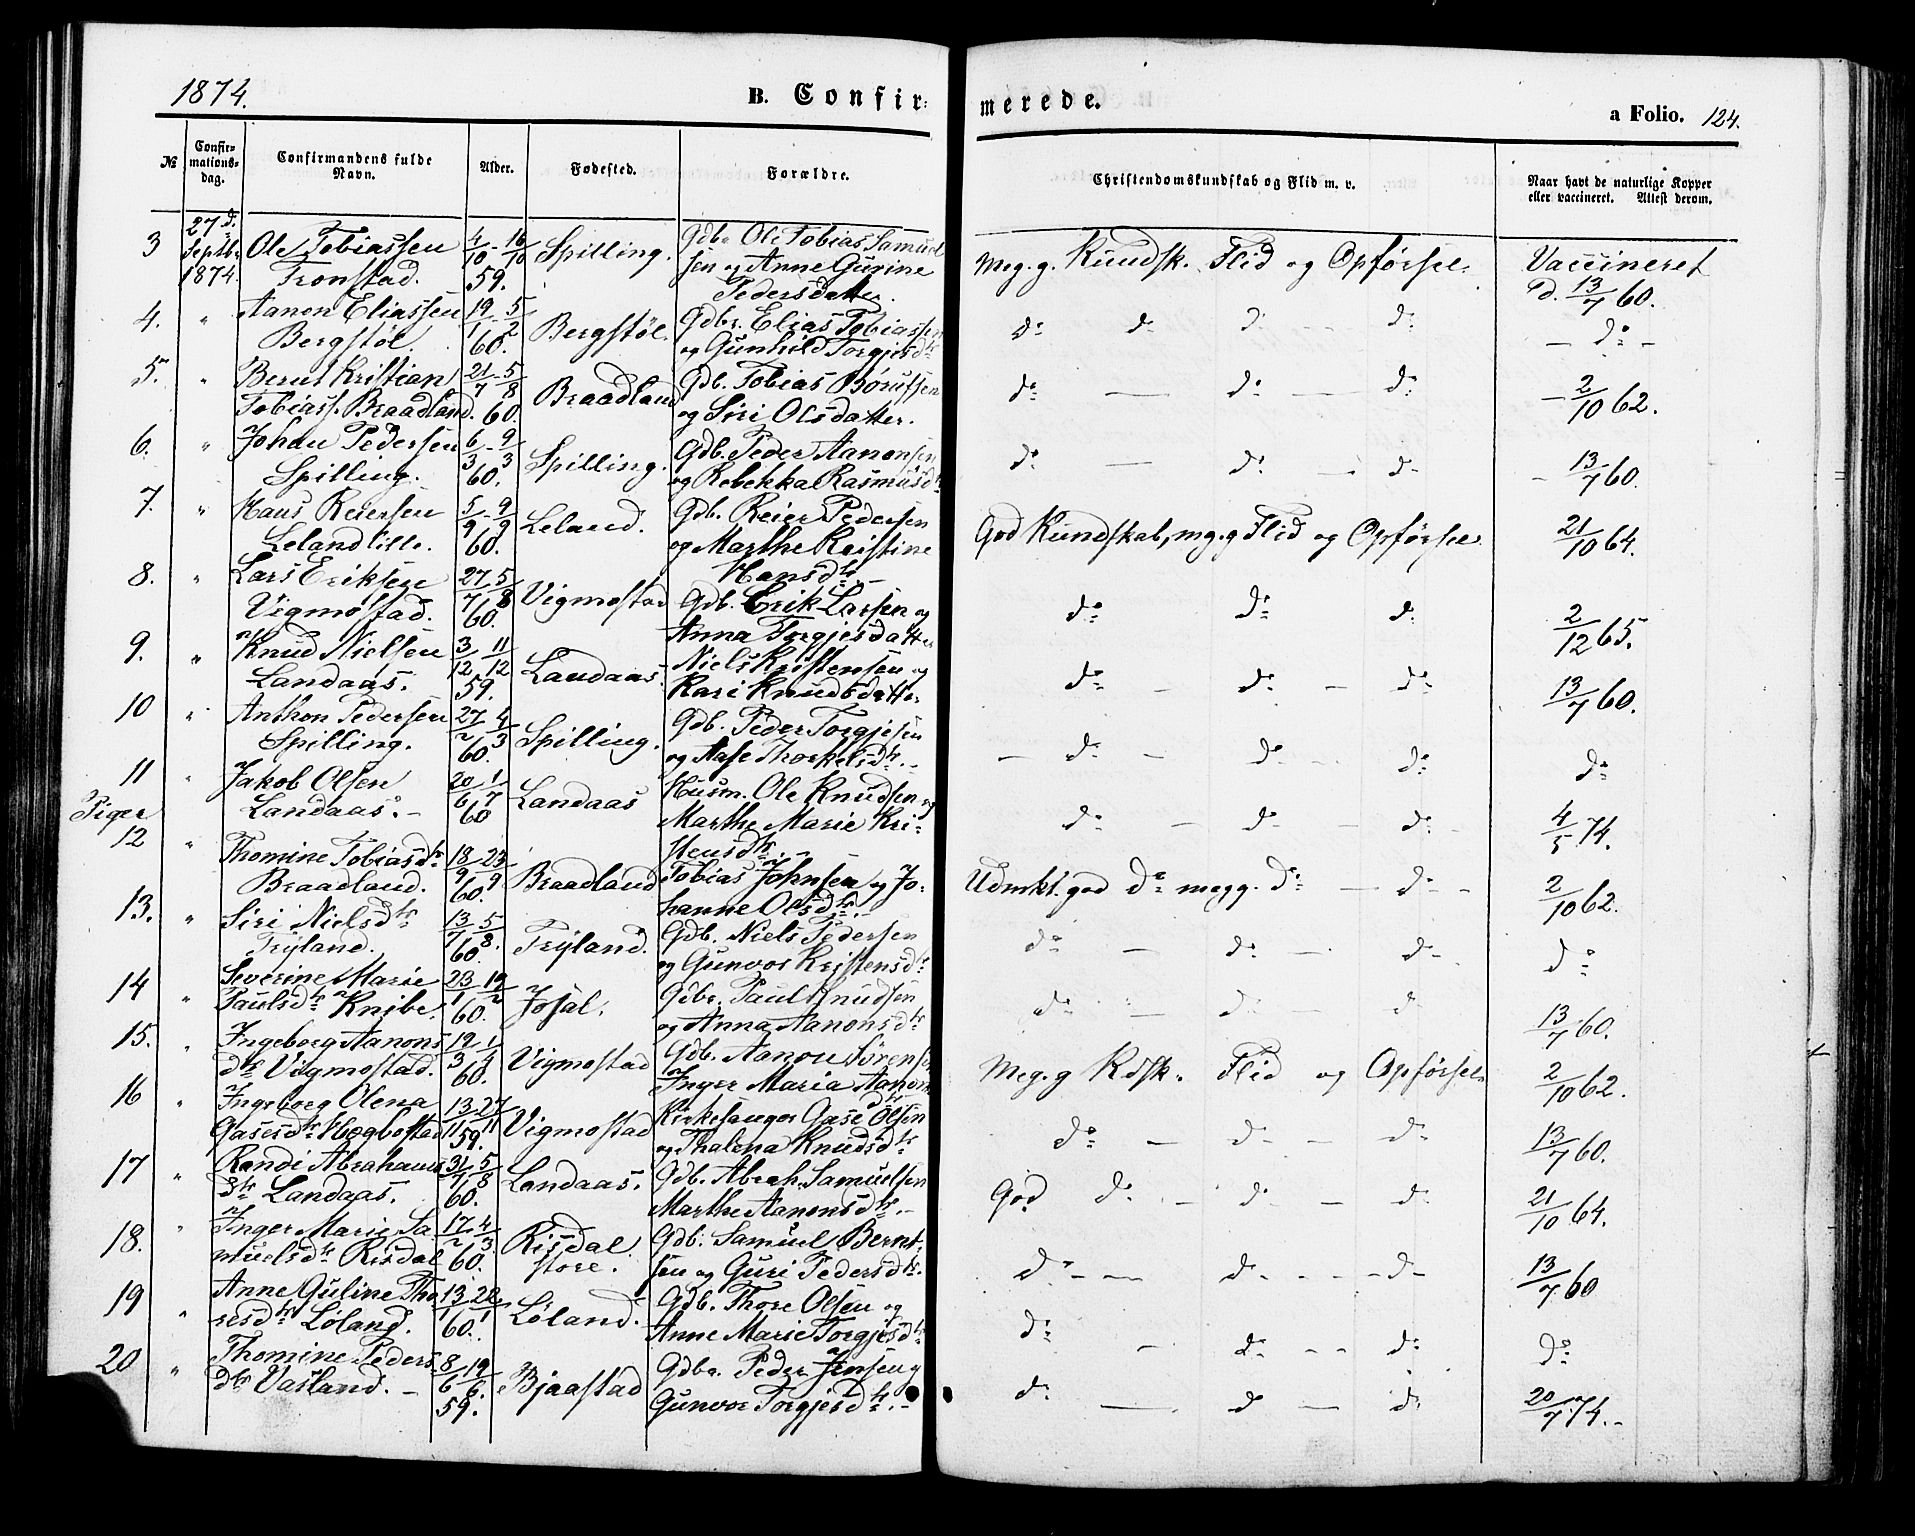 1874.
B. Confir=
merede.
a Folio. 124.
№ Confirmationsdag. Confirmandens fulde Navn. Alder. Fødested. Forældre. Christendomskundskab og Flid m. v. Naar havt de naturlige Kopper eller vaccineret. Attest derom.
3 27de Septbr 1874. Ole Tobiassen Tronstad. 4/10 - 16/10 59. Spilling. Gdbr Ole Tobias Samuelsen og Anne Gurine Pedersdatter. Meg. g. Kundsk. Flid og Opførsel. Vaccineret d. 13/7 60.
4. " Aanon Eliassen Bergstøl. 19/1 - 5/2 60. Bergstøl. Gdbr. Elias Tobiassen og Gunhild Torgjesdtr do do do do - do -
5. " Bernt Kristian Tobiass. Braadland. 21/7 - 5/8 60. Braadland Gdb. Tobias Børufsen og Siri Olsdatter. do — do - do - 2/10 62.
6. " Johan Pedersen Spilling. 6/3 - 9/3 60. Spilling. Gdb. Peder Aanonsen og Rebekka Rasmusdtr do — do — do - 13/7 60.
7. " Hans Reiersen Leland lille. 5/9 - 9/9 60. Leland. Gdb. Reier Pedersen og Marthe Kristine Hansdtr. God Kundskab, mg. g Flid og Opførsel. 21/10 64.
8. " Lars Eriksen Vigmostad. 27/7 5/8 60. Vigmostad Gdb. Erik Larsen og Anna Torgjesdatter do do do 2/12 65.
9. " Knud Nielsen Landaas. 3/12 11/12 59. Landaas. Niels Kristensen og Kari Knudsdatter do - do - do 13/7 60.
10 " Anthon Pedersen Spilling. 27/2 4/3 60. Spilling. Gdb. Peder Torgjesen og Aase Thorkelsdtr. - do - do - do do
11 " Jakob Olsen Landaas. - 20/6 1/7 60 Landaas Husm. Ole Knudsen og Marthe Marie Kristensdtr. do - do - do - 4/5 74.
Piger
12 " Thomine Tobiasdtr Braadland. 18/9 23/9 60. Braadland Tobias Johnsen og Johanne Olsdtr. Udmkt. god do megg. do - do - 2/10 62.
13. " Siri Nielsdtr Tryland. 13/7 5/8 60. Tryland. Gdb. Niels Pedersen og Gunvor Kristensdtr do - do - do do
14 " Severine Marie Paulsdtr Knibe. 23/1 19/2 60. Josal. Gdbr. Paul Knudsen og Anna Aanonsdtr do - do - do 13/7 60.
15. " Ingeborg Aanonsdtr Vigmostad. 12/3 1/4 60. Vigmostad Gdb. Aanon Sørensen Inger Maria Aanonsdtr Meg. g Kdsk. Flid og Opførsel 2/10 62.
16 " Ingeborg Olena Gasesdtr Høgbostad 13/11 27/11 59. Vigmostad Kirkesanger Gase Olsen og Thalena Knudsdtr do - do - do 13/7 60.
17 " Randi Abrahamsdtr Landaas. 31/7 5/8 60. Landaas. Gdb. Abrah. Samuelsen Marthe Aanonsdtr. - God do - do - do 21/10 64.
18. " Inger Marie Samuelsdtr Risdal 17/2 4/3 60. Risdal store. Gdb. Samuel Berntsen og Guri Pedersdtr. do - - do - - - do - 13/7 60
19 " Anne Guline Thoresdtr Løland. 13/1 22/1 60. Løland. Gdb. Thore Olsen og Anne Marie Torgjesdtr do - do - do do
20 " Thomine Pedersdtr Vasland. - 8/6 19/6 59. Bjaastad Gdbr. Peder Jensen og Gunvor Torgjesdtr. - do — do - do 20/7 74. -